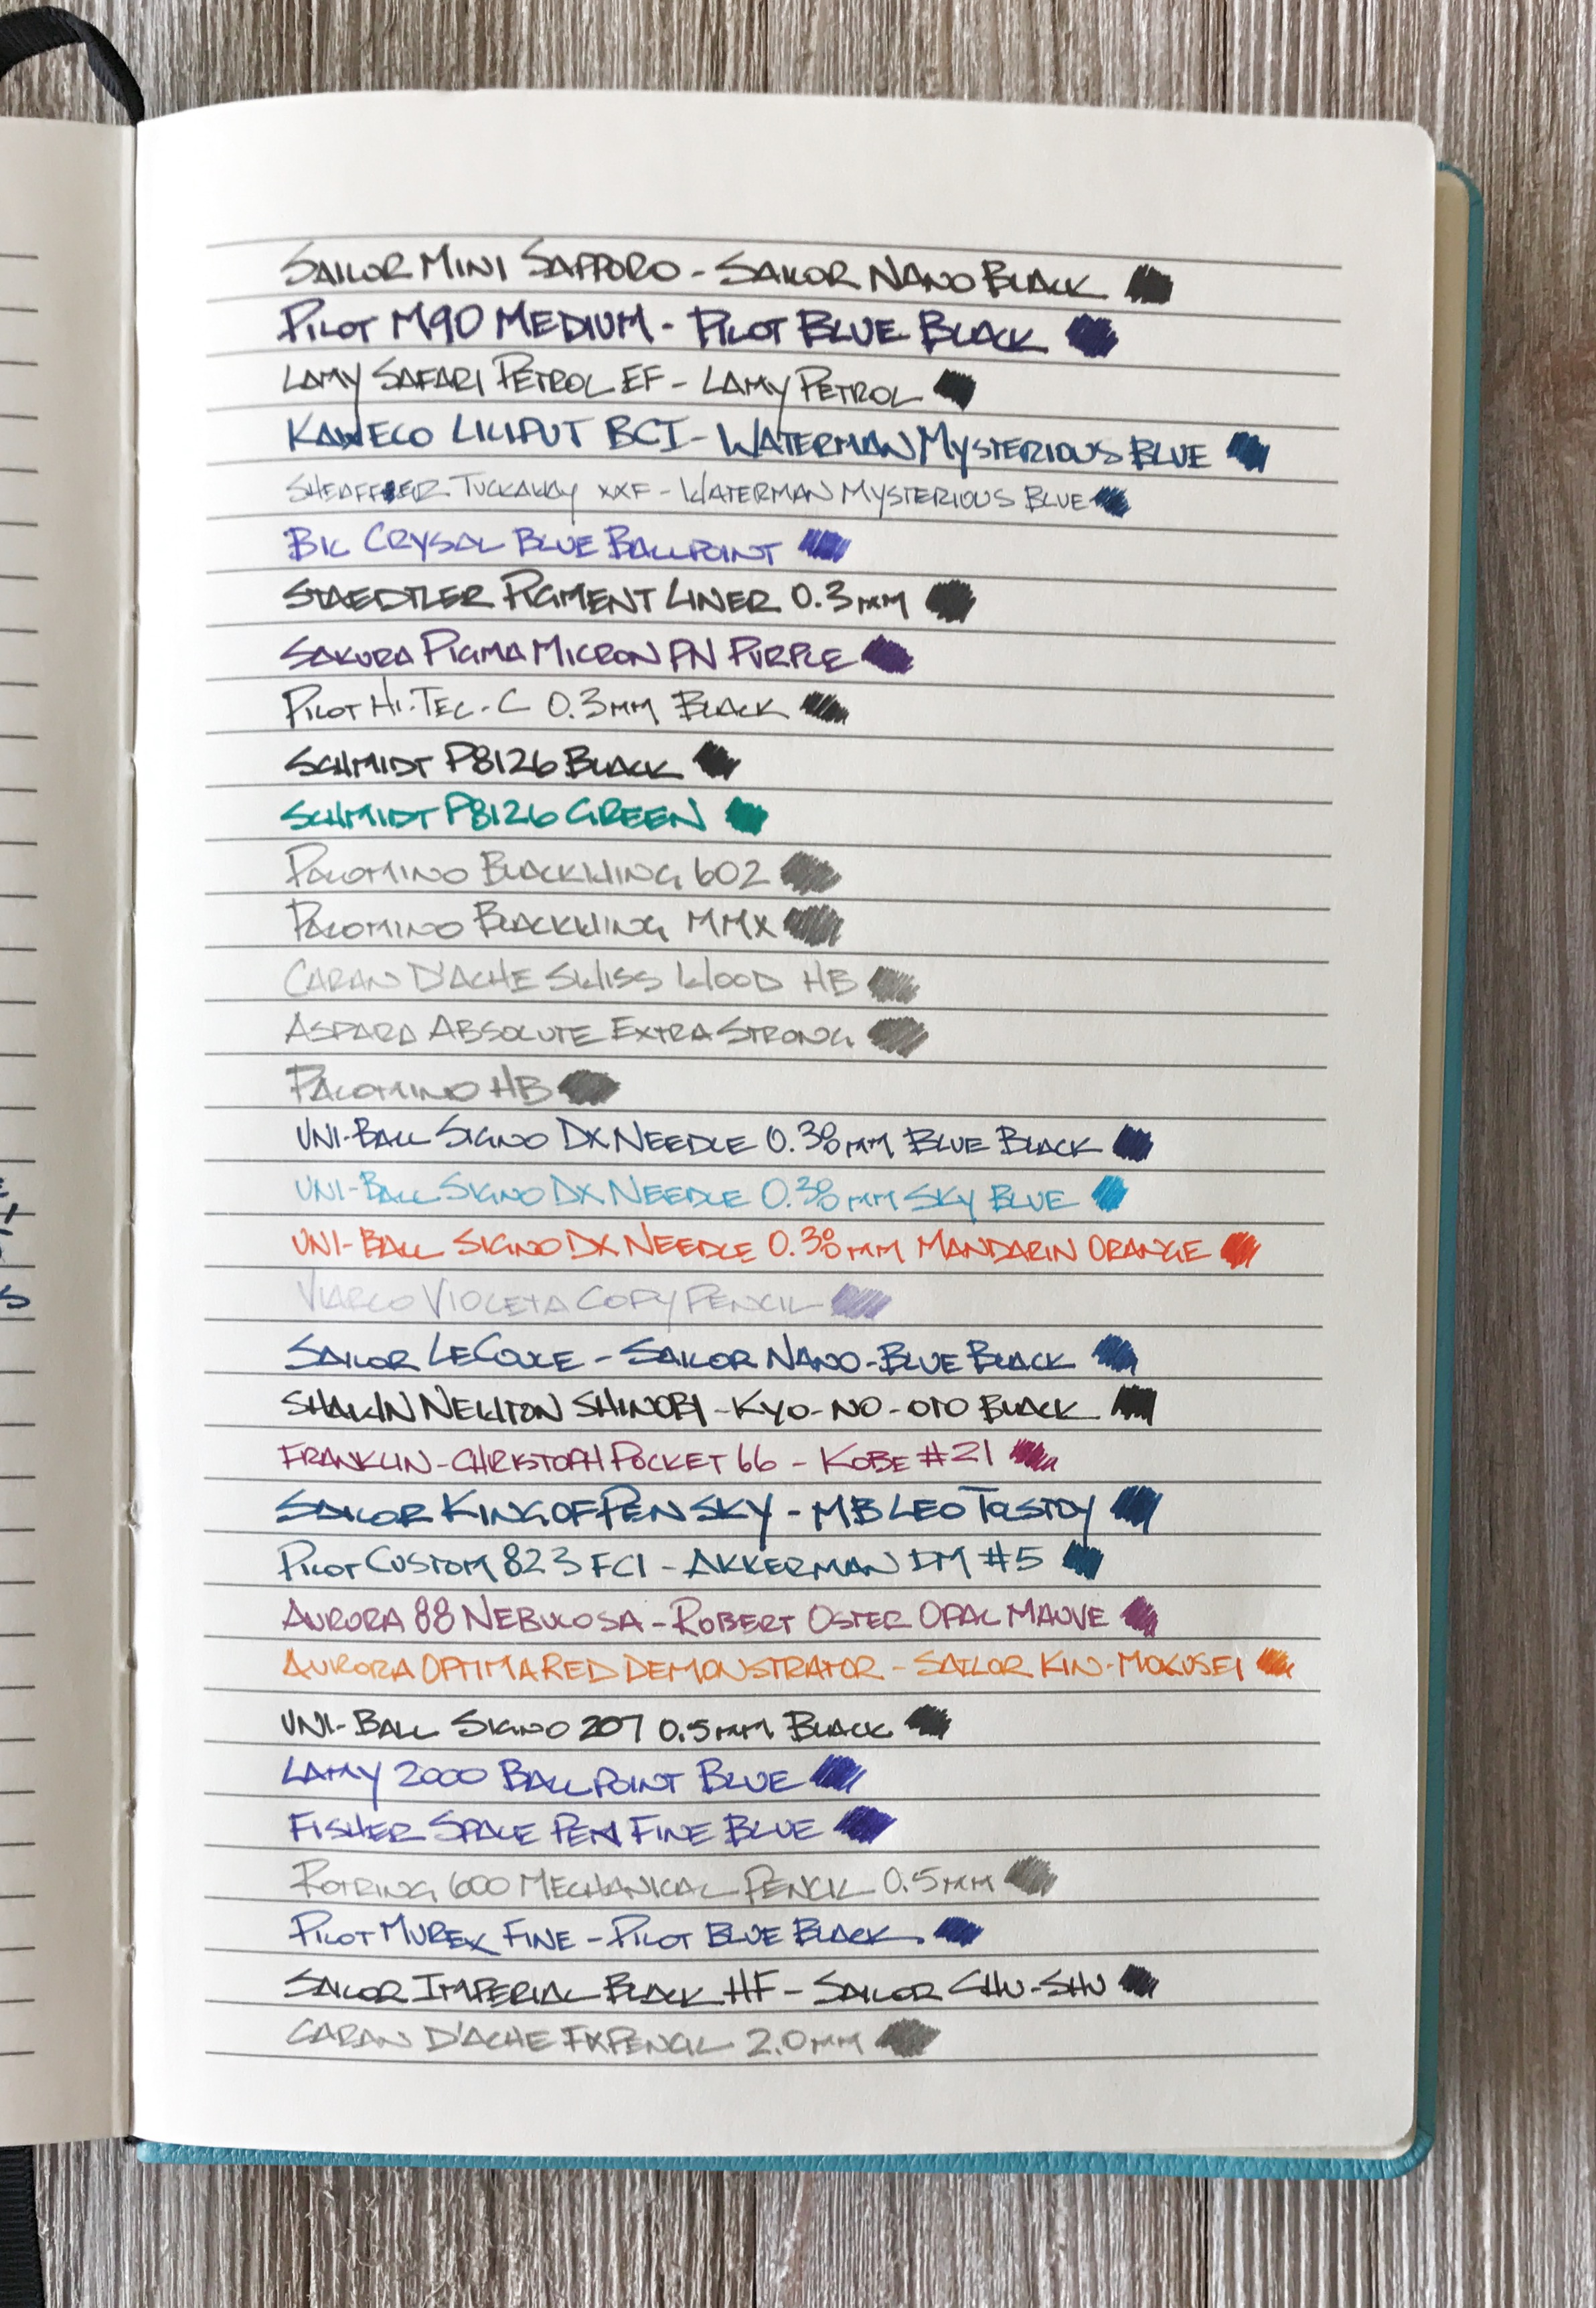 SAILOR MINI SAPPORO - SAILOR NANO BLACK
PILOT M90 MEDIUM - PILOT BLUE BLACK
LAMY SAFARI PETROL EF - LAMY PETROL
KAWECO LILIPUT BCI - WATERMAN MYSTERIOUS BLUE
SHEAFFER TUCKAWAY XXF - WATERMAN MYSTERIOUS BLUE
BIC CRYSAL BLUE BALLPOINT
STAEDTLER PIGMENT LINER 0.3MM
SAKURA PIGMA MICRON PN PURPLE
PILOT HI-TEC-C 0.3MM BLACK
SCHMIDT P8126 BLACK
SCHMIDT P8126 GREEN
PALOMINO BLACKWING 602
PALOMINO BLACKWING MMX
CARAN D'ACHE SWISS WOOD HB
ASPARA ABSOLUTE EXTRA STRONG
PALOMINO HB
UNI-BALL SIGNO DX NEEDLE 0.38MM BLUE BLACK
UNI-BALL SIGNO DX NEEDLE 0.38MM SKY BLUE
UNI-BALL SIGNO DX NEEDLE 0.38MM MANDARIN ORANGE
VIARCO VIOLETA COPY PENCIL
SAILOR LECOULE - SAILOR NANO-BLUE BLACK
SHAWN NEWTON SHINOBI - KYO-NO-OTO BLACK
FRANKLIN-CHRISTOPH POCKET 66 - KOBE #21
SAILOR KING OF PEN SKY - MB LEO TOLSTOY
PILOT CUSTOM 823 FCI - AKKERMAN DM #5
AURORA 88 NEBULOSA - ROBERT OSTER OPAL MAUVE
AURORA OPTIMA RED DEMONSTRATOR - SAILOR KIN-MOKUSEI
UNI-BALL SIGNO 207 0.5MM BLACK
LAMY 2000 BALLPOINT BLUE
FISHER SPACE PEN FINE BLUE
ROTRING 600 MECHANICAL PENCIL 0.5MM
PILOT MUREX FINE - PILOT BLUE BLACK
SAILOR IMPERIAL BLACK HF - SAILOR CHU-SHU
CARAN D'ACHE FIXPENCIL 2.0MM